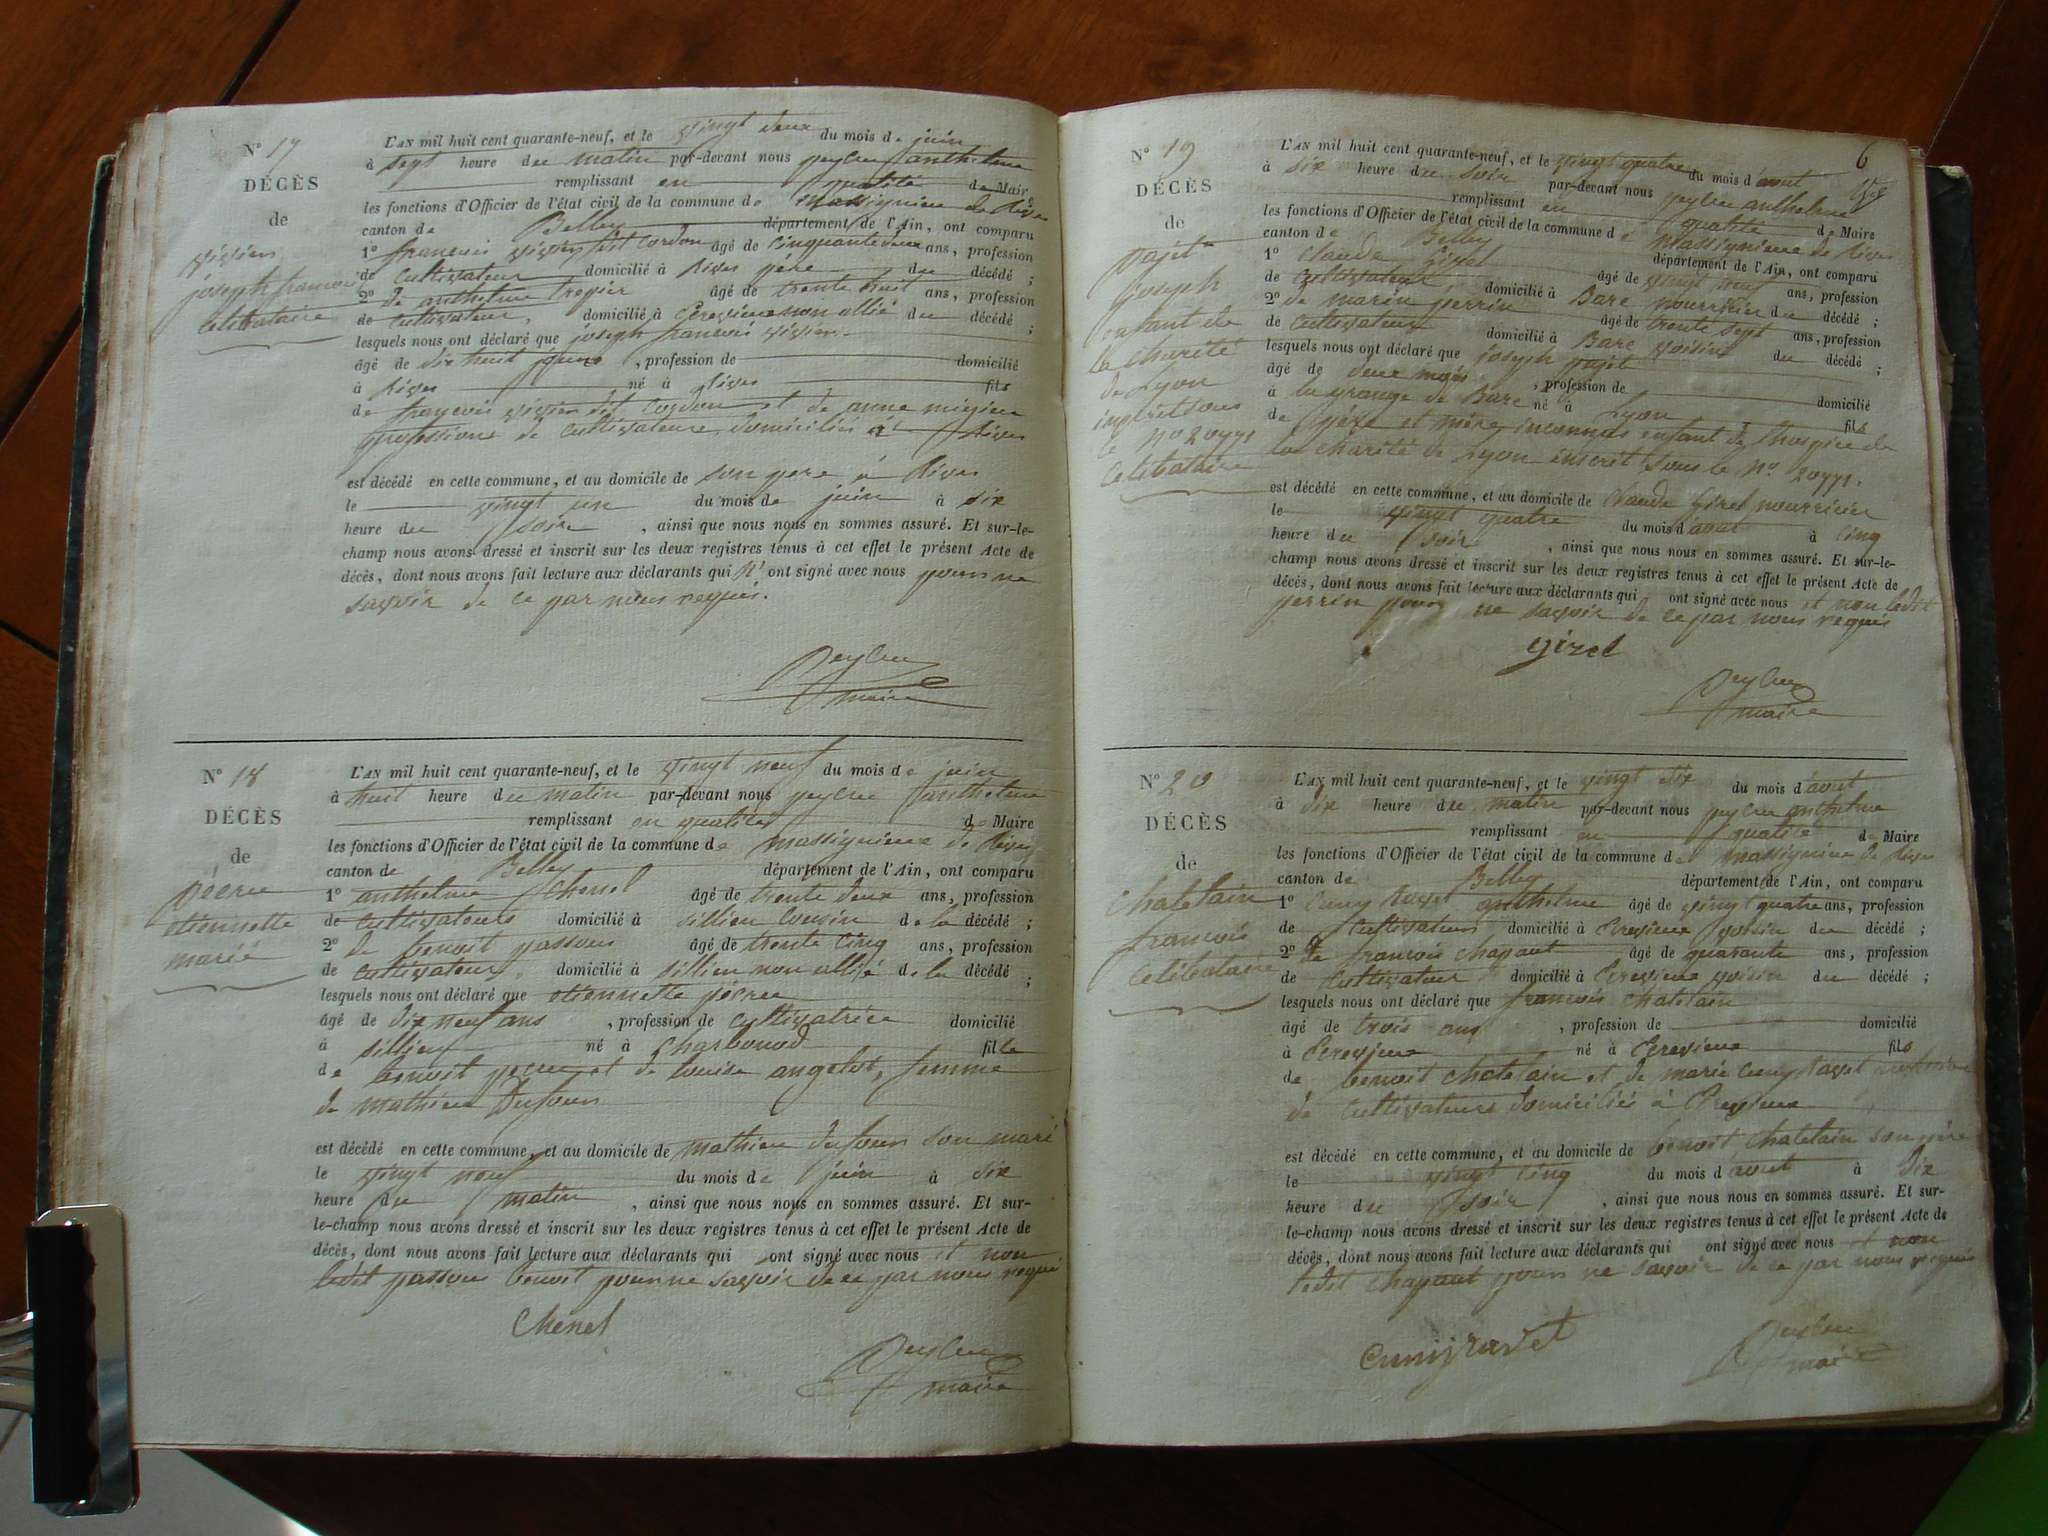 N° 17
DÉCÈS
de
vivien
joseph francois
celibataire
L'AN mil huit cent quarante-neuf, et le vingt deux du mois de juin
à sept heure du matin par-devant nous peyleu anthelme
remplissant en qualité de Maire
les fonctions d'Officier de l'état civil de la commune de Massignieu de Rives
canton de Belley département de l'Ain, ont comparu
1° francois vivien dit Cordon âgé de cinquante deux ans, profession
de cultivateur domicilié à Rives père du décédé ;
2° de anthelme trepier âgé de trente huit ans, profession
de cultivateur, domicilié à Cresieu non allié du décédé ;
lesquels nous ont déclaré que joseph francois vivien
âgé de dix huit jours, profession de domicilié
à Rives né à Rives fils
de françois vivien dit Cordon et de anne
professions de cultivateurs domiciliés à Rives
est décédé en cette commune, et au domicile de son pere à Rives
le vingt un du mois de juin à six
heure du soir, ainsi que nous nous en sommes assuré. Et sur-le-
champ nous avons dressé et inscrit sur les deux registres tenus à cet effet le présent Acte de
décès, dont nous avons fait lecture aux déclarants qui n'ont signé avec nous pour ne
savoir de ce par nous requis.
Peyleu
maire
N° 18
DÉCÈS
de
pécreu
etiennette
marié
L'AN mil huit cent quarante-neuf, et le vingt neuf du mois de juin
à huit heure du matin par-devant nous peyleu anthelme
remplissant en qualité de Maire
les fonctions d'Officier de l'état civil de la commune de massignieu de Rives
canton de Belley département de l'Ain, ont comparu
1° anthelme Chenel âgé de trente deux ans, profession
de cultivateurs domicilié à sillien cousin de la décédé ;
2° de benoit passou âgé de trente cinq ans, profession
de cultivateur, domicilié à sillien non allié de la décédé ;
lesquels nous ont déclaré que etiennette pécreu
âgé de dix neuf ans, profession de cultivatrice domicilié
à sillien né à Charbonod fille
de benoit pecreu et de louise angelot, femme
de mathieu Dufour
est décédé en cette commune, et au domicile de mathieu dufour son mari
le vingt neuf du mois de juin à six
heure du matin, ainsi que nous nous en sommes assuré. Et sur-
le-champ nous avons dressé et inscrit sur les deux registres tenus à cet effet le présent Acte de
décès, dont nous avons fait lecture aux déclarants qui ont signé avec nous et non
ledit passou benoit pour ne savoir de ce par nous requi
Chenel
Peyleu
maire
6
N° 19
DÉCÈS
de
pajet
joseph
enfant de
la charité
de Lyon
inscrit sous
le n° 20771
celibataire
L'AN mil huit cent quarante-neuf, et le vingt quatre du mois d'aout
à six heure du soir par-devant nous peyleu anthelme
remplissant en qualité de Maire
les fonctions d'Officier de l'état civil de la commune de massignieu de Rives
canton de Belley département de l'Ain, ont comparu
1° Claude girel âgé de vingt neuf ans, profession
de cultivateur, domicilié à Bare nourricier du décédé ;
2° de marin perrin âgé de trente sept ans, profession
de cultivateur domicilié à Bare voisins du décédé ;
lesquels nous ont déclaré que joseph pajet
âgé de deux mois, profession de domicilié
à la grange de Bare né à Lyon fils
de père et mère inconnus enfant de l'hospice de
la charité de Lyon inscrit sous le n° 20771.
est décédé en cette commune, et au domicile de Claude Girel nourricier
le vingt quatre du mois d'aout à cinq
heure du soir, ainsi que nous nous en sommes assuré. Et sur-le-
champ nous avons dressé et inscrit sur les deux registres tenus à cet effet le présent Acte de
décès, dont nous avons fait lecture aux déclarants qui ont signé avec nous et non ledit
perrin pour ne savoir de ce par nous requis
girel
Peyleu
maire
N° 20
DÉCÈS
de
chatelain
francois
celibataire
L'AN mil huit cent quarante-neuf, et le vingt six du mois d'aout
à dix heure du matin par-devant nous peyleu anthelme
remplissant en qualité de Maire
les fonctions d'Officier de l'état civil de la commune de massignieu de Rives
canton de Belley département de l'Ain, ont comparu
1° Cuny Ravet anthelme âgé de vingt quatre ans, profession
de cultivateur domicilié à Cresieu voisin du décédé ;
2° de francois chapaut âgé de quarante ans, profession
de cultivateur domicilié à Cresieu voisin du décédé ;
lesquels nous ont déclaré que francois chatelain
âgé de trois ans, profession de domicilié
à Cresieu né à Cresieu fils
de benoit chatelain et de marie Cuny Ravet
de cultivateurs domiciliés à Cresieu
est décédé en cette commune, et au domicile de benoit chatelain son père
le vingt cinq du mois d'aout à dix
heure du soir, ainsi que nous nous en sommes assuré. Et sur-
le-champ nous avons dressé et inscrit sur les deux registres tenus à cet effet le présent Acte de
décès, dont nous avons fait lecture aux déclarants qui ont signé avec nous et non
ledit chapaut pour ne savoir de ce par nous requis
Cunyravet
Peyleu
maire